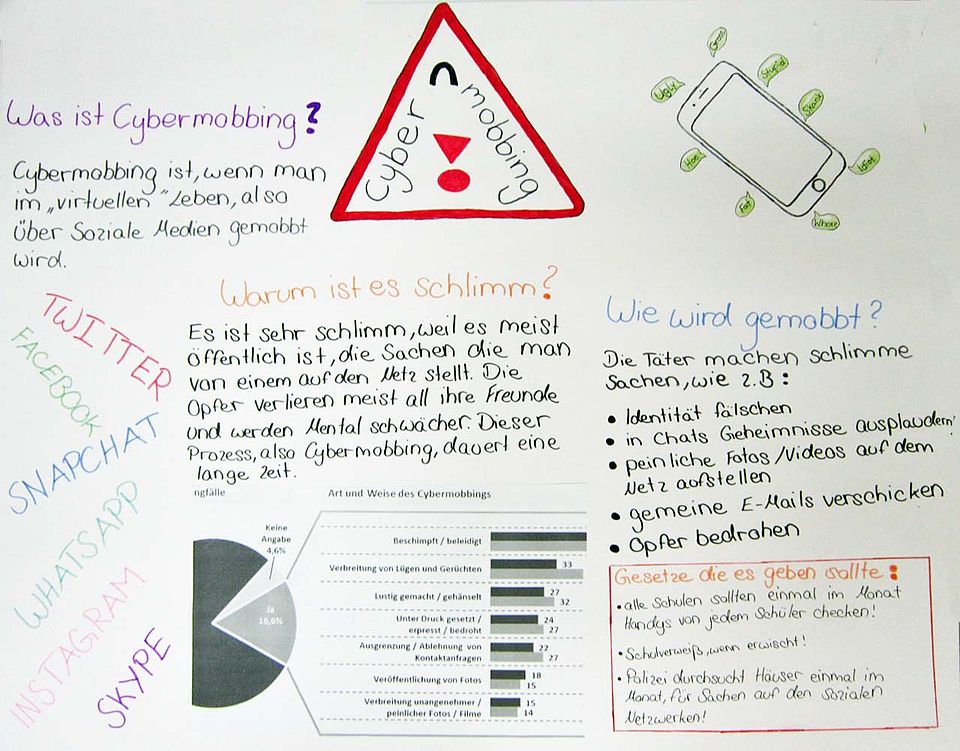 Cyber mobbing
Gross
Stupid
Ugly
Skank
Hoe
Idiot
Fat
Whore
Was ist Cybermobbing?
Cybermobbing ist, wenn man
im „virtuellen" Leben, also
über Soziale Medien gemobbt
wird.
TWITTER
FACEBOOK
SNAPCHAT
WHATSAPP
INSTAGRAM
SKYPE
Warum ist es schlimm?
Es ist sehr schlimm, weil es meist
öffentlich ist, die Sachen die man
von einem auf den Netz stellt. Die
Opfer verlieren meist all ihre Freunde
und werden Mental schwächer. Dieser
Prozess, also Cybermobbing, dauert eine
lange Zeit.
ngfälle
Art und Weise des Cybermobbings
Keine
Angabe
4,6%
Ja
16,6%
Beschimpft / beleidigt
Verbreitung von Lügen und Gerüchten 33
Lustig gemacht / gehänselt 27
32
Unter Druck gesetzt / 24
erpresst / bedroht 27
Ausgrenzung / Ablehnung von 22
Kontaktanfragen 27
Veröffentlichung von Fotos 18
15
Verbreitung unangenehmer / 15
peinlicher Fotos / Filme 14
Wie wird gemobbt?
Die Täter machen schlimme
Sachen, wie z.B:
• Identität fälschen
• in Chats Geheimnisse ausplaudern
• peinliche Fotos/Videos auf dem
Netz aufstellen
• gemeine E-Mails verschicken
• Opfer bedrohen
Gesetze die es geben sollte:
• alle Schulen sollten einmal im Monat
Handys von jedem Schüler checken!
• Schulverweiß, wenn erwischt!
• Polizei durchsucht Häuser einmal im
Monat, für Sachen auf den Sozialen
Netzwerken!